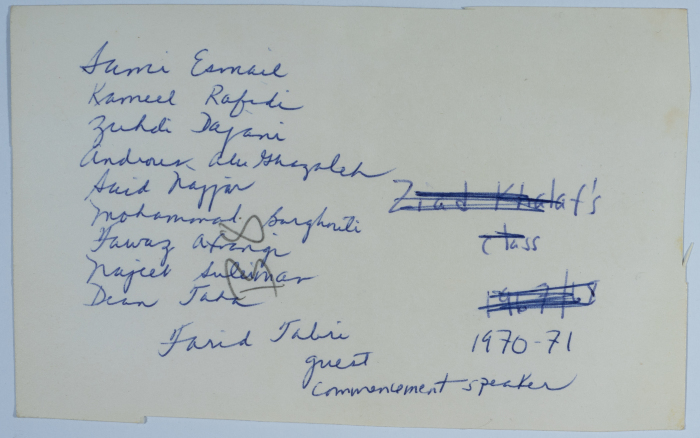 Sami Esmail
Kameel Rafidi
Zuhdi Dajani
Androus Abu Ghazaleh
Said Najjar
Mohammad Barghouti
Fawaz
Najeeb Suleiman
Dean Taha
Farid Tabri
guest
commencement speaker
Ziad Khalaf's
class
1970-71